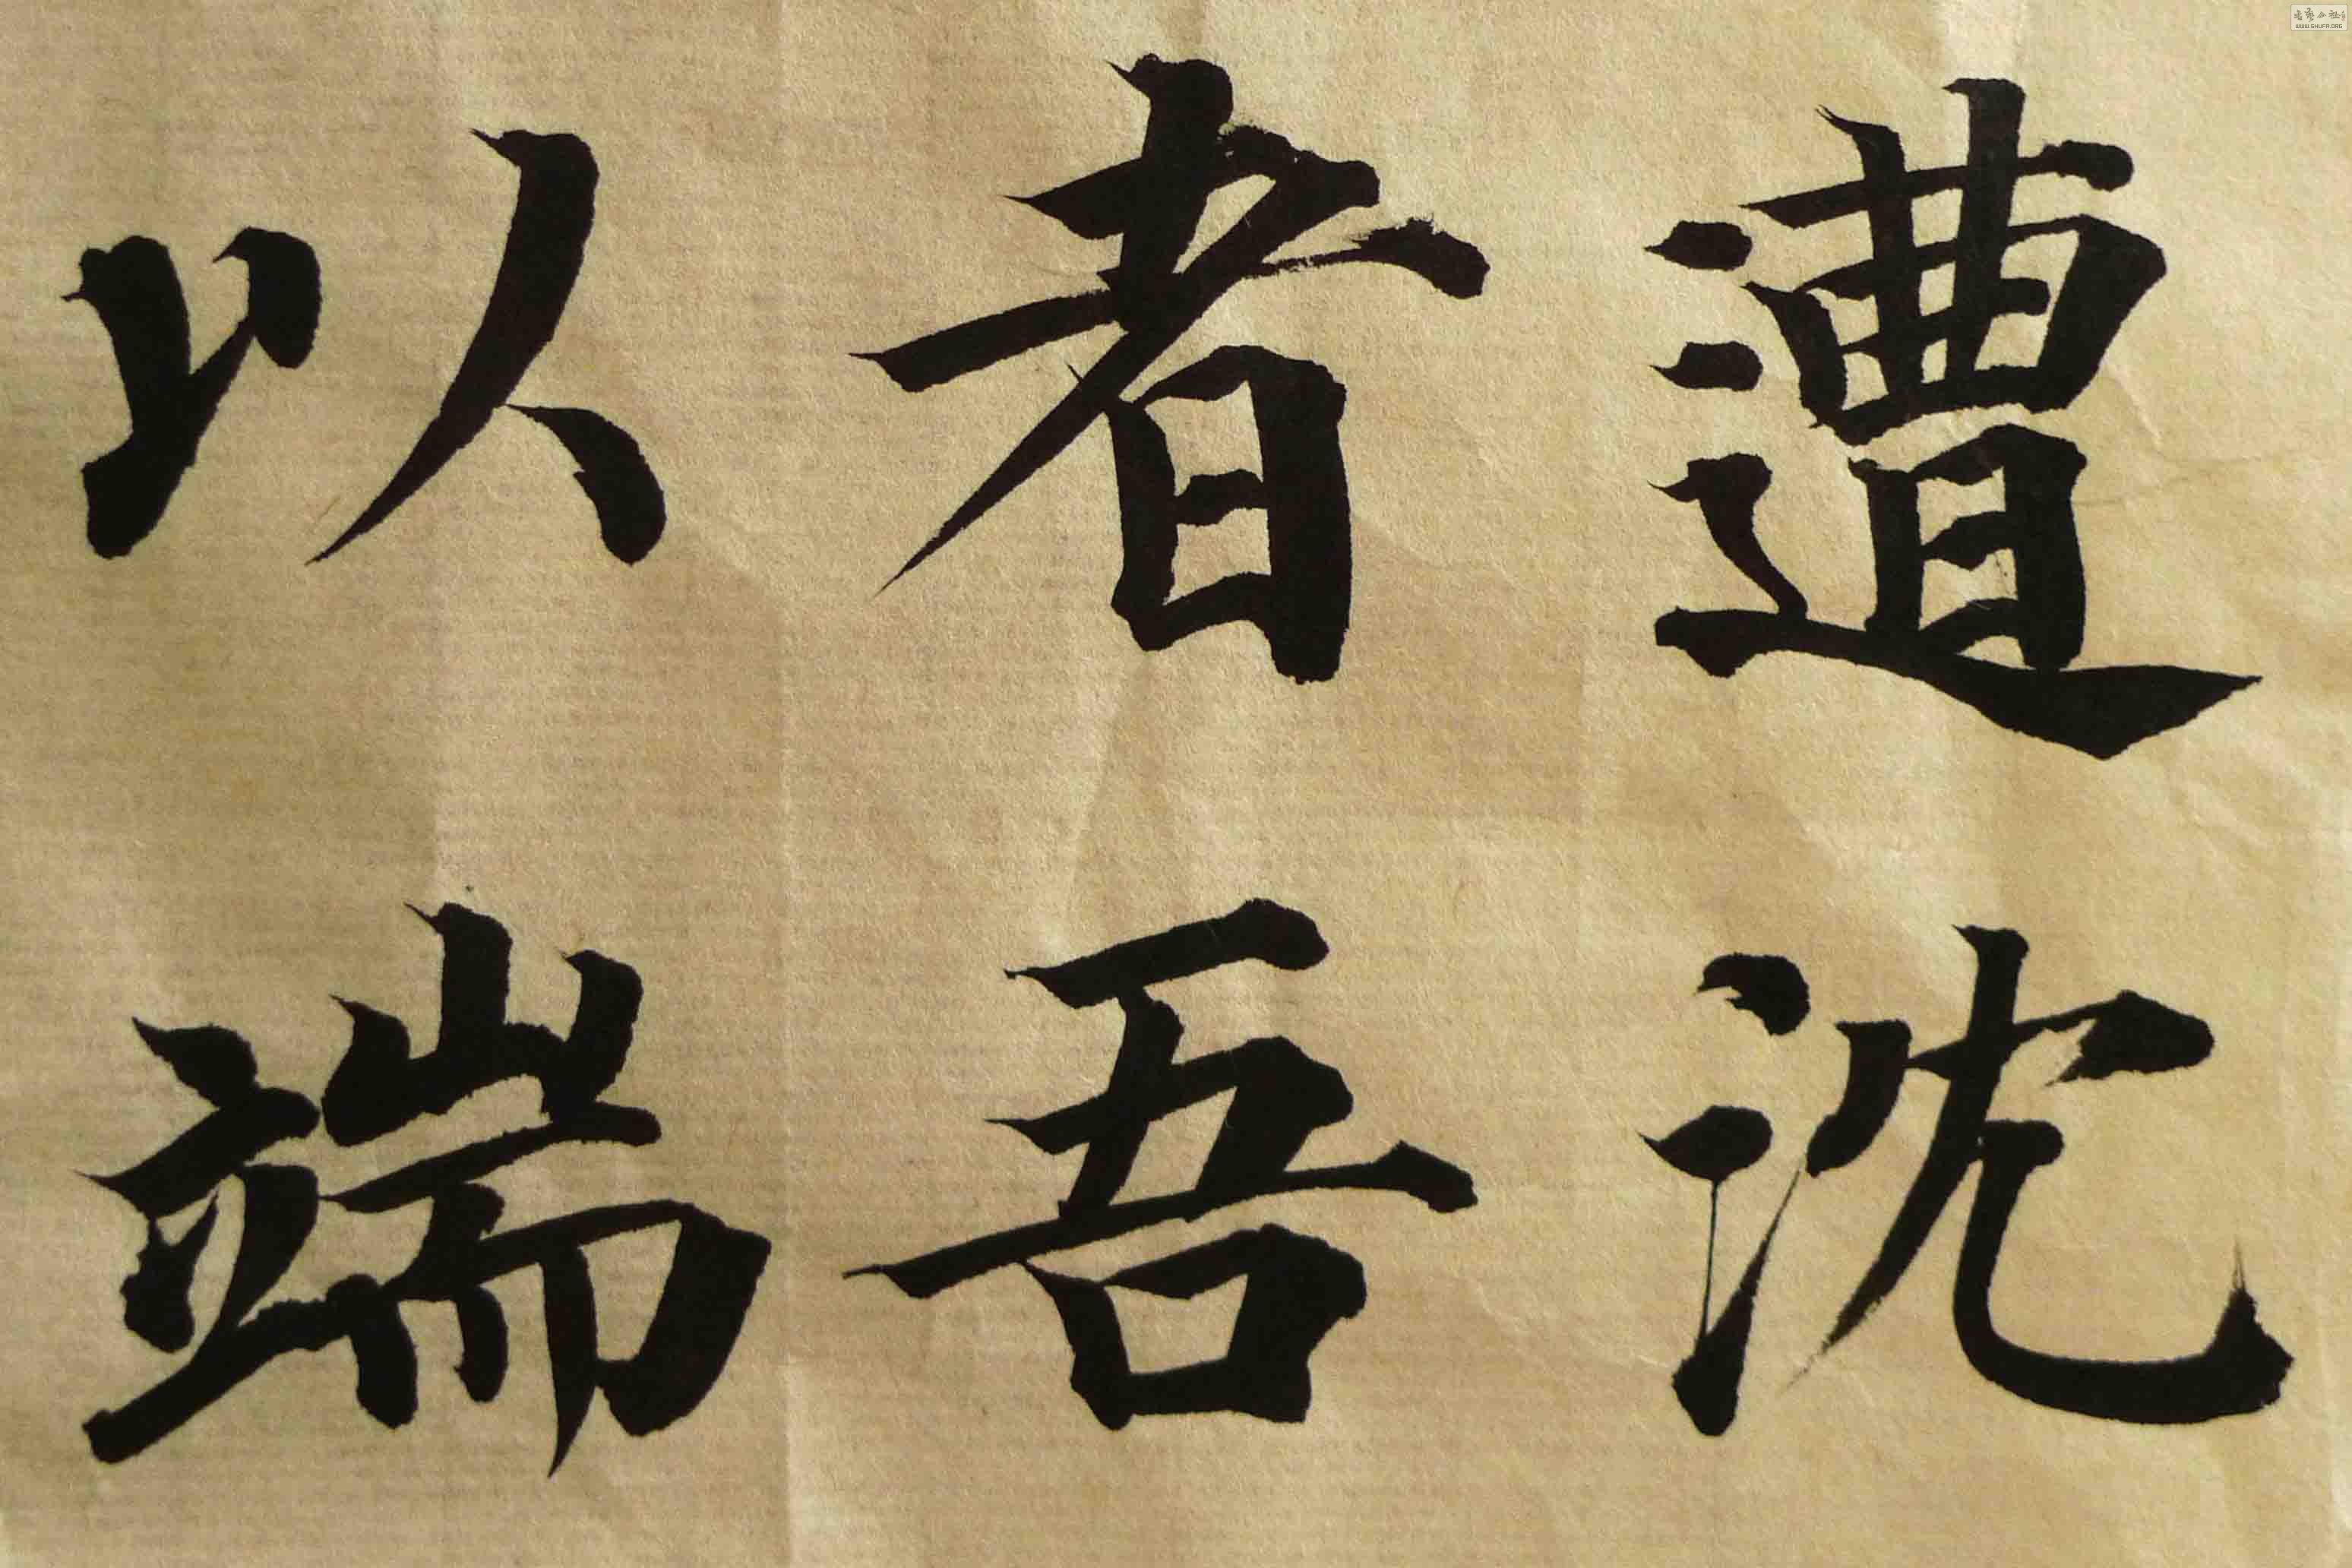 遭沈
者吾
以端
WWW.SHUFA.ORG